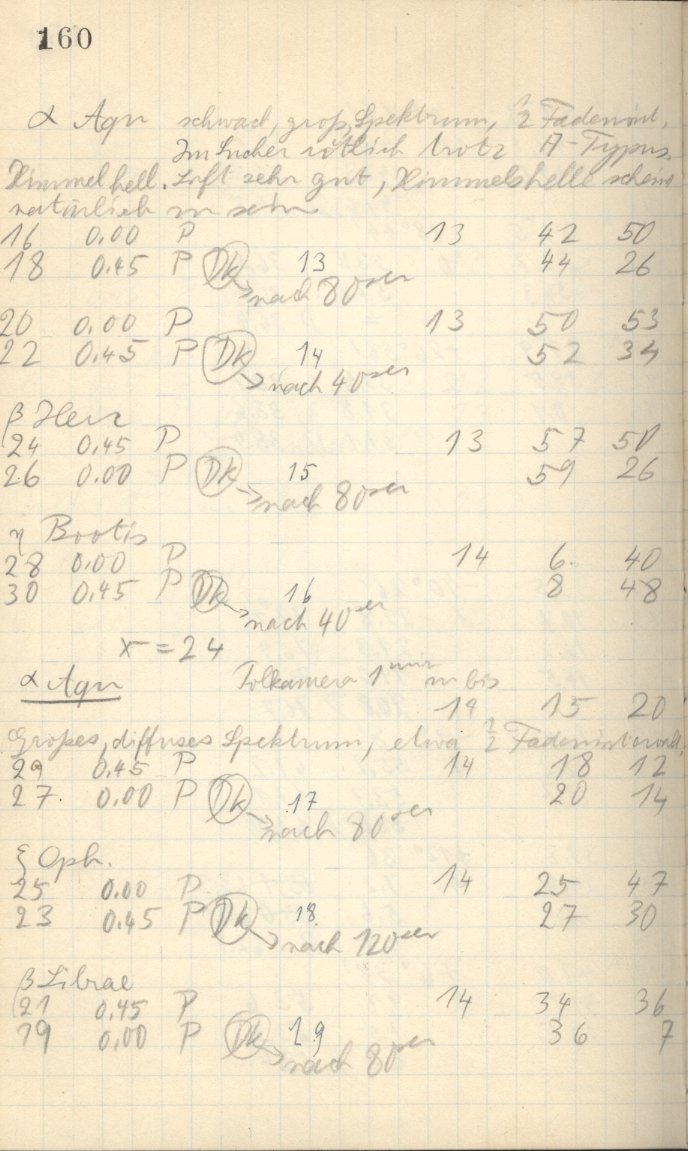 160
α Aqu schwach, groß, Spektrum, 1/2 Fadenint.
Im Sucher rötlich trotz A-Typus.
Himmel hell. Luft sehr gut, Himmelshelle scheint
natürlich zu sein
16 0.00 P 13 42 50
18 0.45 P Dk 13 44 26
→ nach 80 sec
20 0.00 P 13 50 53
22 0.45 P Dk 14 52 34
→ nach 40 sec
β Herc
24 0.45 P 13 57 50
26 0.00 P Dk 15 59 26
→ nach 80 sec
η Bootis
28 0.00 P 14 6. 40
30 0.45 P Dk 16 8 48
→ nach 40 sec
x = 24
α Aqu Polkamera 1 min zu bis
14 15 20
Großes, diffuses Spektrum, etwa 1/2 Fadenintervall,
29 0.45 P 14 18 12
27. 0.00 P Dk 17 20 14
→ nach 80 sec
ξ Oph.
25 0.00 P. 14 25 47
23 0.45 P Dk 18 27 30
→ nach 120 sec
β Librae
21 0.45 P 14 34 36
19 0.00 P Dk 19 36 7
→ nach 80 sec